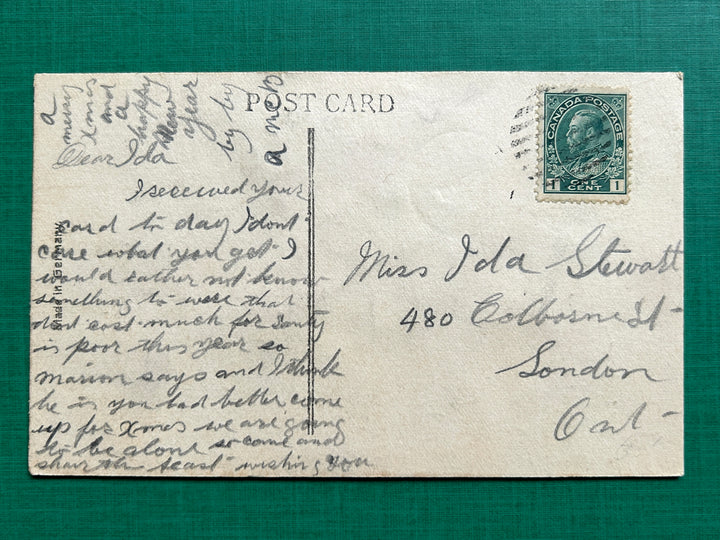 POST CARD
CANADA POSTAGE
1 ONE CENT 1
Made in Germany
Dear Ida
I received your
card to day I dont
care what you get I
would rather not know
something to were that
dont cost much for Santy
is poor this year so
marion says and I think
he is you had better come
up for Xmes we are going
to be alone so come and
share the feast wishing you
a
merry
Xmis
and
a
happy
New
year
by by
Miss Ida Stewart
480 Colborne St
London
Ont